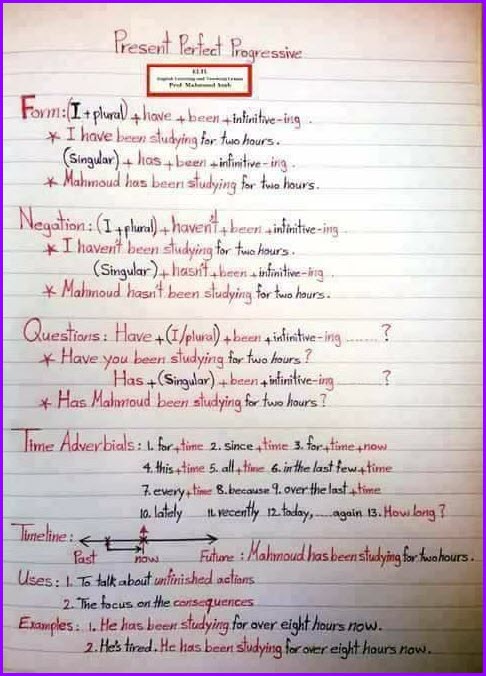 Present Perfect Progressive
ELTL
English Learning and Teaching Lesson
Prof. Mahmoud
Form: (I + plural) + have + been + infinitive-ing.
* I have been studying for two hours.
(Singular) + has + been + infinitive-ing.
* Mahmoud has been studying for two hours.
Negation: (I + plural) + haven't + been + infinitive-ing
* I haven't been studying for two hours.
(Singular) + hasn't + been + infinitive-ing
* Mahmoud hasn't been studying for two hours.
Questions: Have + (I/plural) + been + infinitive-ing .......?
* Have you been studying for two hours?
Has + (Singular) + been + infinitive-ing .........?
* Has Mahmoud been studying for two hours?
Time Adverbials: 1. for + time 2. since + time 3. for + time + now
4. this + time 5. all + time 6. in the last few + time
7. every + time 8. because 9. over the last + time
10. lately 11. recently 12. today, ..... again 13. How long?
Timeline:
Past now Future : Mahmoud has been studying for two hours.
Uses: 1. To talk about unfinished actions
2. The focus on the consequences
Examples: 1. He has been studying for over eight hours now.
2. He's tired. He has been studying for over eight hours now.